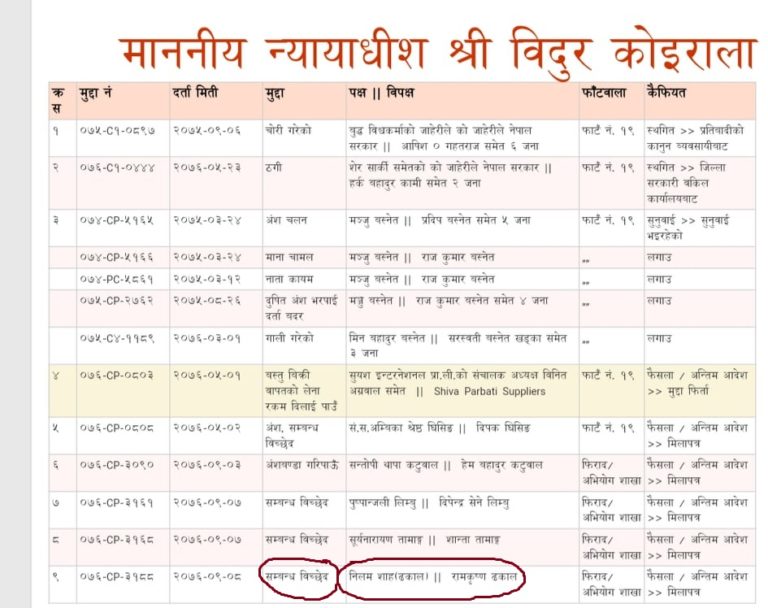 माननीय न्यायाधीश श्री विदुर कोइराला
क्र स मुद्दा नं दर्ता मिती मुद्दा पक्ष || विपक्ष फाँटवाला कैफियत
१ ०७५-C१-०८९७ २०७५-०९-०६ चोरी गरेको वुद्ध विश्वकर्माको जाहेरीले को जाहेरीले नेपाल फाटँ नं. १९ स्थगित >> प्रतिवादीको
सरकार || आषिश ० गहतराज समेत ६ जना कानुन व्यवसायीवाट
२ ०७६-C१-०४४४ २०७६-०५-२३ ठगी शेर सार्की समेतको को जाहेरीले नेपाल सरकार || फाटँ नं. १९ स्थगित >> जिल्ला
हर्क वहादुर कामी समेत २ जना सरकारी वकिल
कार्यालयवाट
३ ०७४-CP-५१६५ २०७५-०३-२४ अंश चलन मञ्जु वस्नेत || प्रदिप वस्नेत समेत ५ जना फाटँ नं. १९ सुनुवाई >> सुनुवाई
भइरहेको
०७४-CP-५१६६ २०७५-०३-२४ माना चामल मञ्जु वस्नेत || राज कुमार वस्नेत ,,, लगाउ
०७४-PC-५८६१ २०७५-०३-१२ नाता कायम मञ्जु वस्नेत || राज कुमार वस्नेत ,,, लगाउ
०७५-CP-२७६२ २०७५-०८-२६ दुषित अंश भरपाई मञ्जु वस्नेत || राज कुमार वस्नेत समेत ४ जना ,,, लगाउ
दर्ता वदर
०७५-C४-११८९ २०७६-०३-०१ गाली गरेको मिन वहादुर वस्नेत || सरस्वती वस्नेत खड्का समेत ,,, लगाउ
३ जना
४ ०७६-CP-०८०३ २०७६-०५-०१ वस्तु विक्री सुयश इन्टरनेशनल प्रा.ली.को संचालक अध्यक्ष विनित फाटँ नं. १९ फैसला / अन्तिम आदेश
वापतको लेना अग्रवाल समेत || Shiva Parbati Suppliers >> मुद्दा फिर्ता
रकम दिलाई पाउँ
५ ०७६-CP-०८०८ २०७६-०५-०२ अंश, सम्वन्ध सं.स.अम्विका श्रेष्ठ घिसिङ || दिपक घिसिङ फाटँ नं. १९ फैसला / अन्तिम आदेश
विच्छेद >> मिलापत्र
६ ०७६-CP-३०९० २०७६-०९-०३ अंशवण्डा गरिपाऊँ सन्तोषी थापा कटुवाल || हेम वहादुर कटुवाल फिराद/ फैसला / अन्तिम आदेश
अभियोग शाखा >> मिलापत्र
७ ०७६-CP-३१६१ २०७६-०९-०७ सम्वन्ध विच्छेद पुष्पान्जली लिम्बु || दिपेन्द्र सेने लिम्वु फिराद/ फैसला / अन्तिम आदेश
अभियोग शाखा >> मिलापत्र
८ ०७६-CP-३१६८ २०७६-०९-०७ सम्वन्ध विच्छेद सूर्यनारायण तामाङ्ग || शान्ता तामाङ्ग फिराद/ फैसला / अन्तिम आदेश
अभियोग शाखा >> मिलापत्र
९ ०७६-CP-३१८८ २०७६-०९-०८ सम्वन्ध विच्छेद निलम शाह(ढकाल) || रामकृष्ण ढकाल फिराद/ फैसला / अन्तिम आदेश
अभियोग शाखा >> मिलापत्र